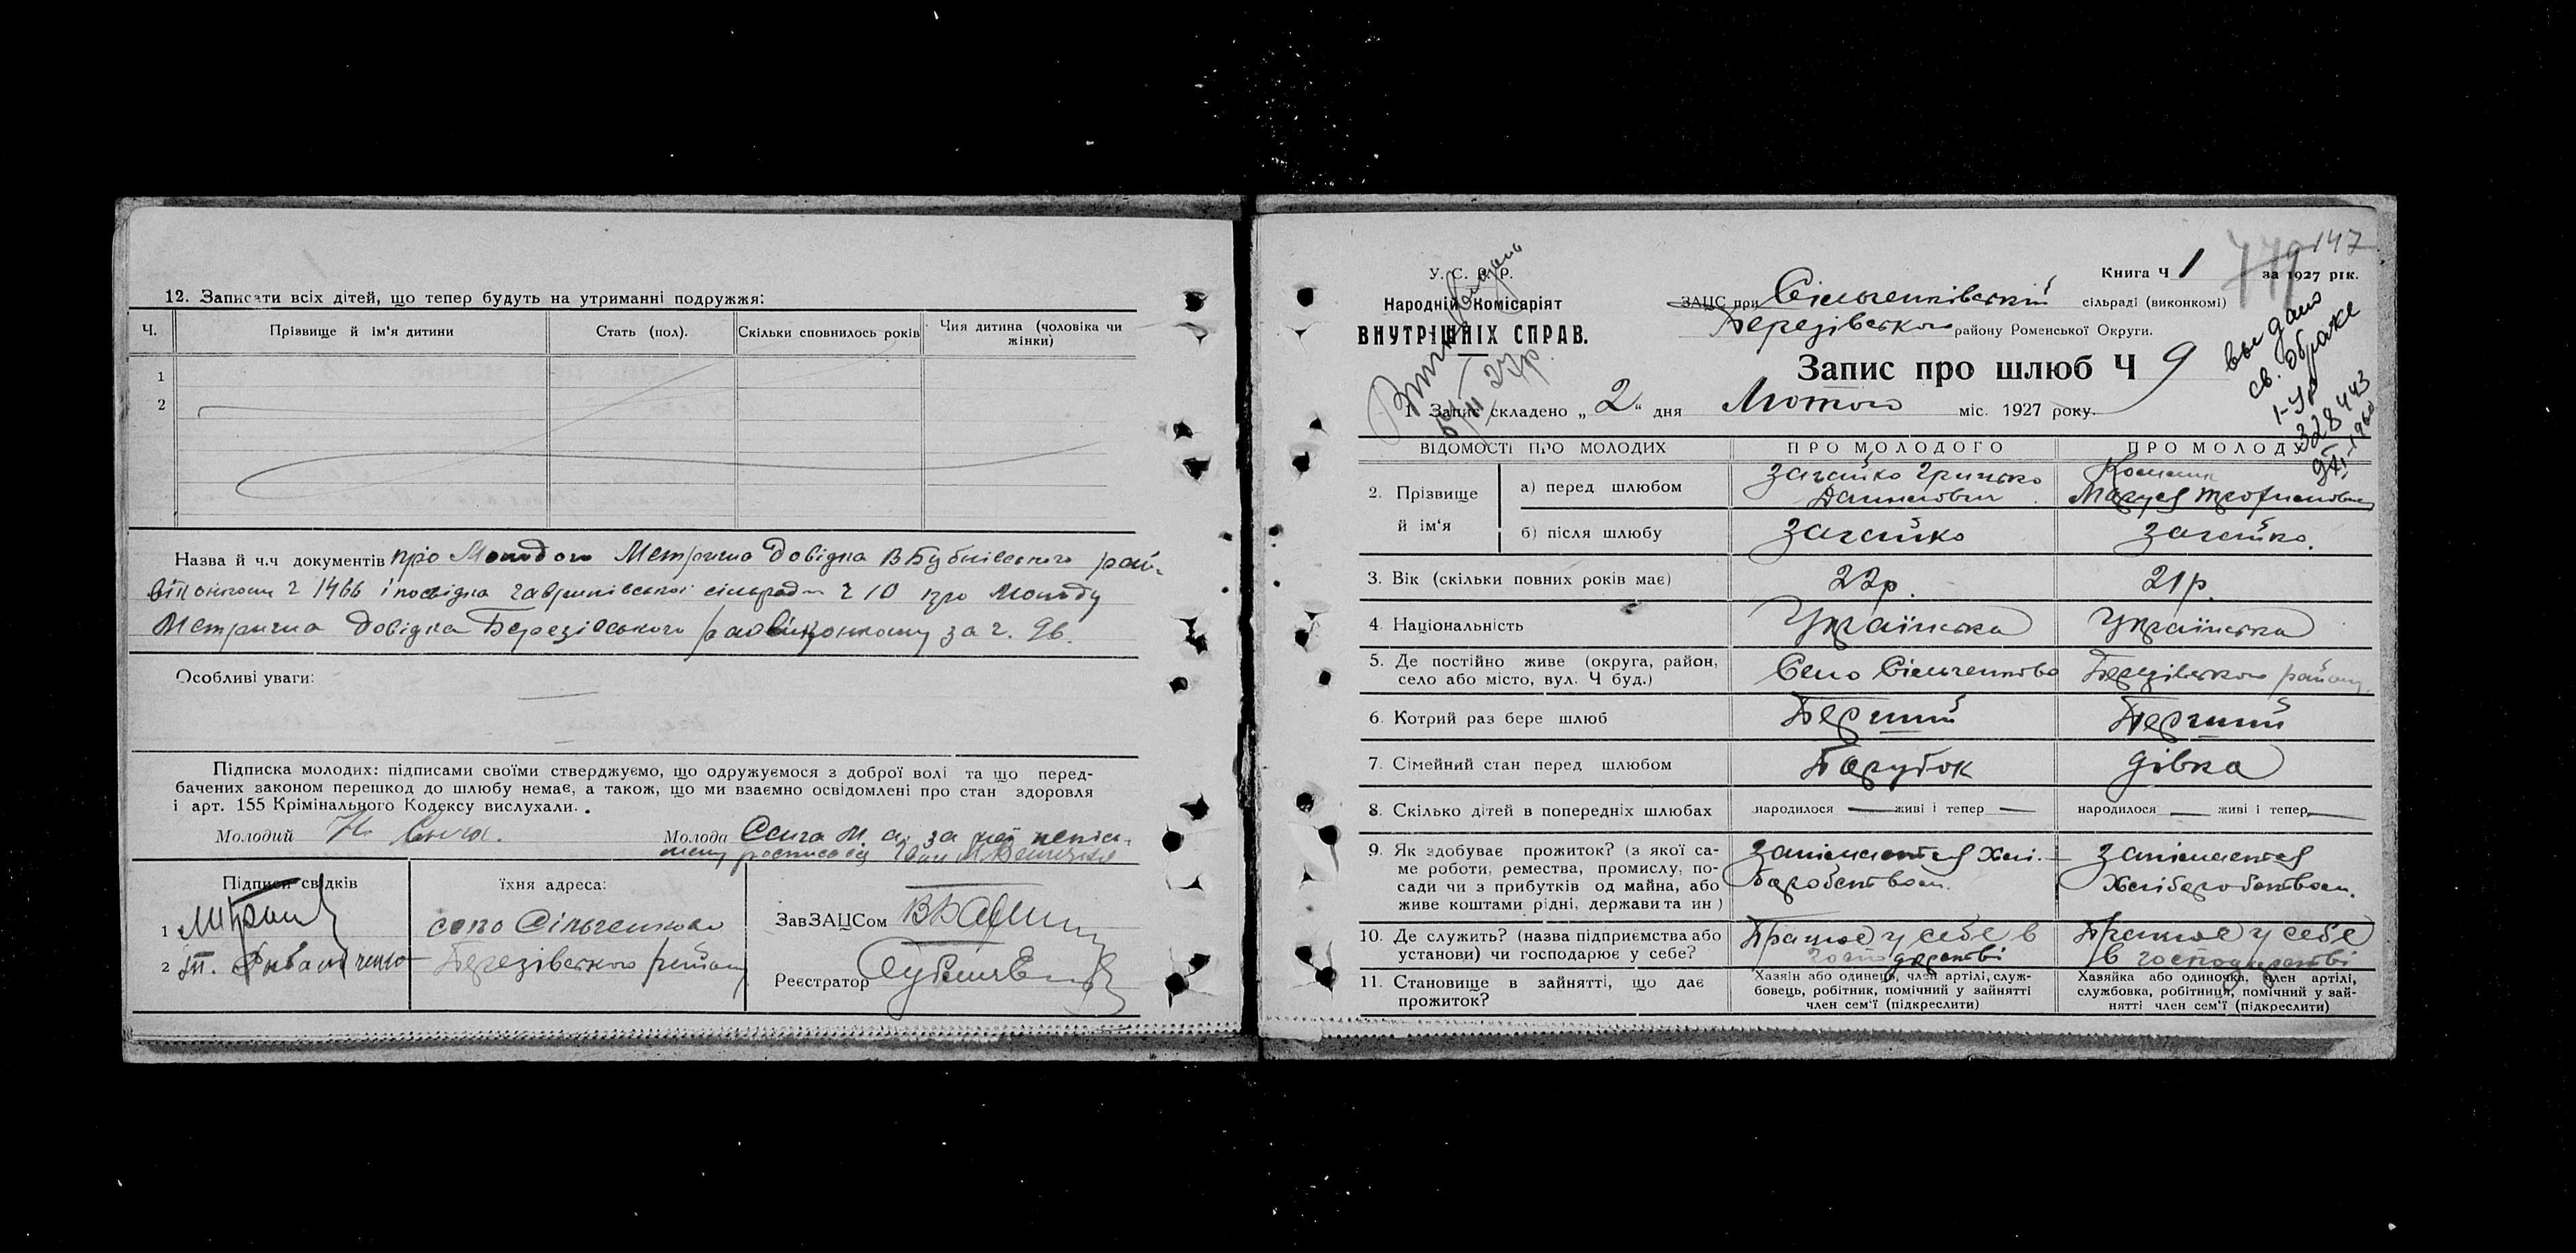 12. Записати всіх дітей, що тепер будуть на утриманні подружжя:
Ч. Прізвище й ім'я дитини Стать (пол). Скільки сповнилось років Чия дитина (чоловіка чи жінки)
1
2
Назва й ч.ч документів про Молодого Метрична Довідка
ч 1466 і посвідка сільради ч 10 про Молоду
Метрична Довідка Березівського райвиконкому за ч. 96.
Особливі уваги:
Підписка молодих: підписами своїми стверджуємо, що одружуємося з доброї волі та що перед-
бачених законом перешкод до шлюбу немає, а також, що ми взаємно освідомлені про стан здоровля
і арт. 155 Крімінального Кодексу вислухали.
Молодий Молода за
Підписи свідків їхня адреса:
1 село Сільченково
2 Березівського району
ЗавЗАЦСом
Реєстратор
147
У. С. Р. Р.
Народній Комісаріят
ВНУТРІШНІХ СПРАВ.
Книга Ч 1 за 1927 рік.
ЗАЦС при Сільченківській сільраді (виконкомі)
Березівського району Роменської Округи.
Запис про шлюб Ч 9
выдано
св. о браке
328443
1. Запис складено „ 2 " дня Лютого міс. 1927 року.
ВІДОМОСТІ ПРО МОЛОДИХ ПРО МОЛОДОГО ПРО МОЛОД
2. Прізвище й ім'я
а) перед шлюбом Загайко Грицько Данилович Маруся Трофимовна
б) після шлюбу Загайко Загайко.
3. Вік (скільки повних років має) 22р. 21р.
4. Національність Українська Українська
5. Де постійно живе (округа, район, село або місто, вул. Ч буд.) Село Сільченково Березівського району
6. Котрий раз бере шлюб Перший Перший
7. Сімейний стан перед шлюбом Парубок дівка
8. Скілько дітей в попередніх шлюбах народилося — живі і тепер — народилося — живі і тепер —
9. Як здобуває прожиток? (з якої са-
ме роботи, ремества, промислу, по-
сади чи з прибутків од майна, або
живе коштами рідні, держави та ин)
10. Де служить? (назва підприємства або
установи) чи господарює у себе? Працює у себе в господарстві Працює у себе в господарстві
11. Становище в зайнятті, що дає
прожиток?
Хазяїн або одинець, член артілі, служ-
бовець, робітник, помічний у зайнятті
член сем'ї (підкреслити)
Хазяйка або одиночка, член артілі,
службовка, робітниця, помічний у зай-
нятті член сем'ї (підкреслити)